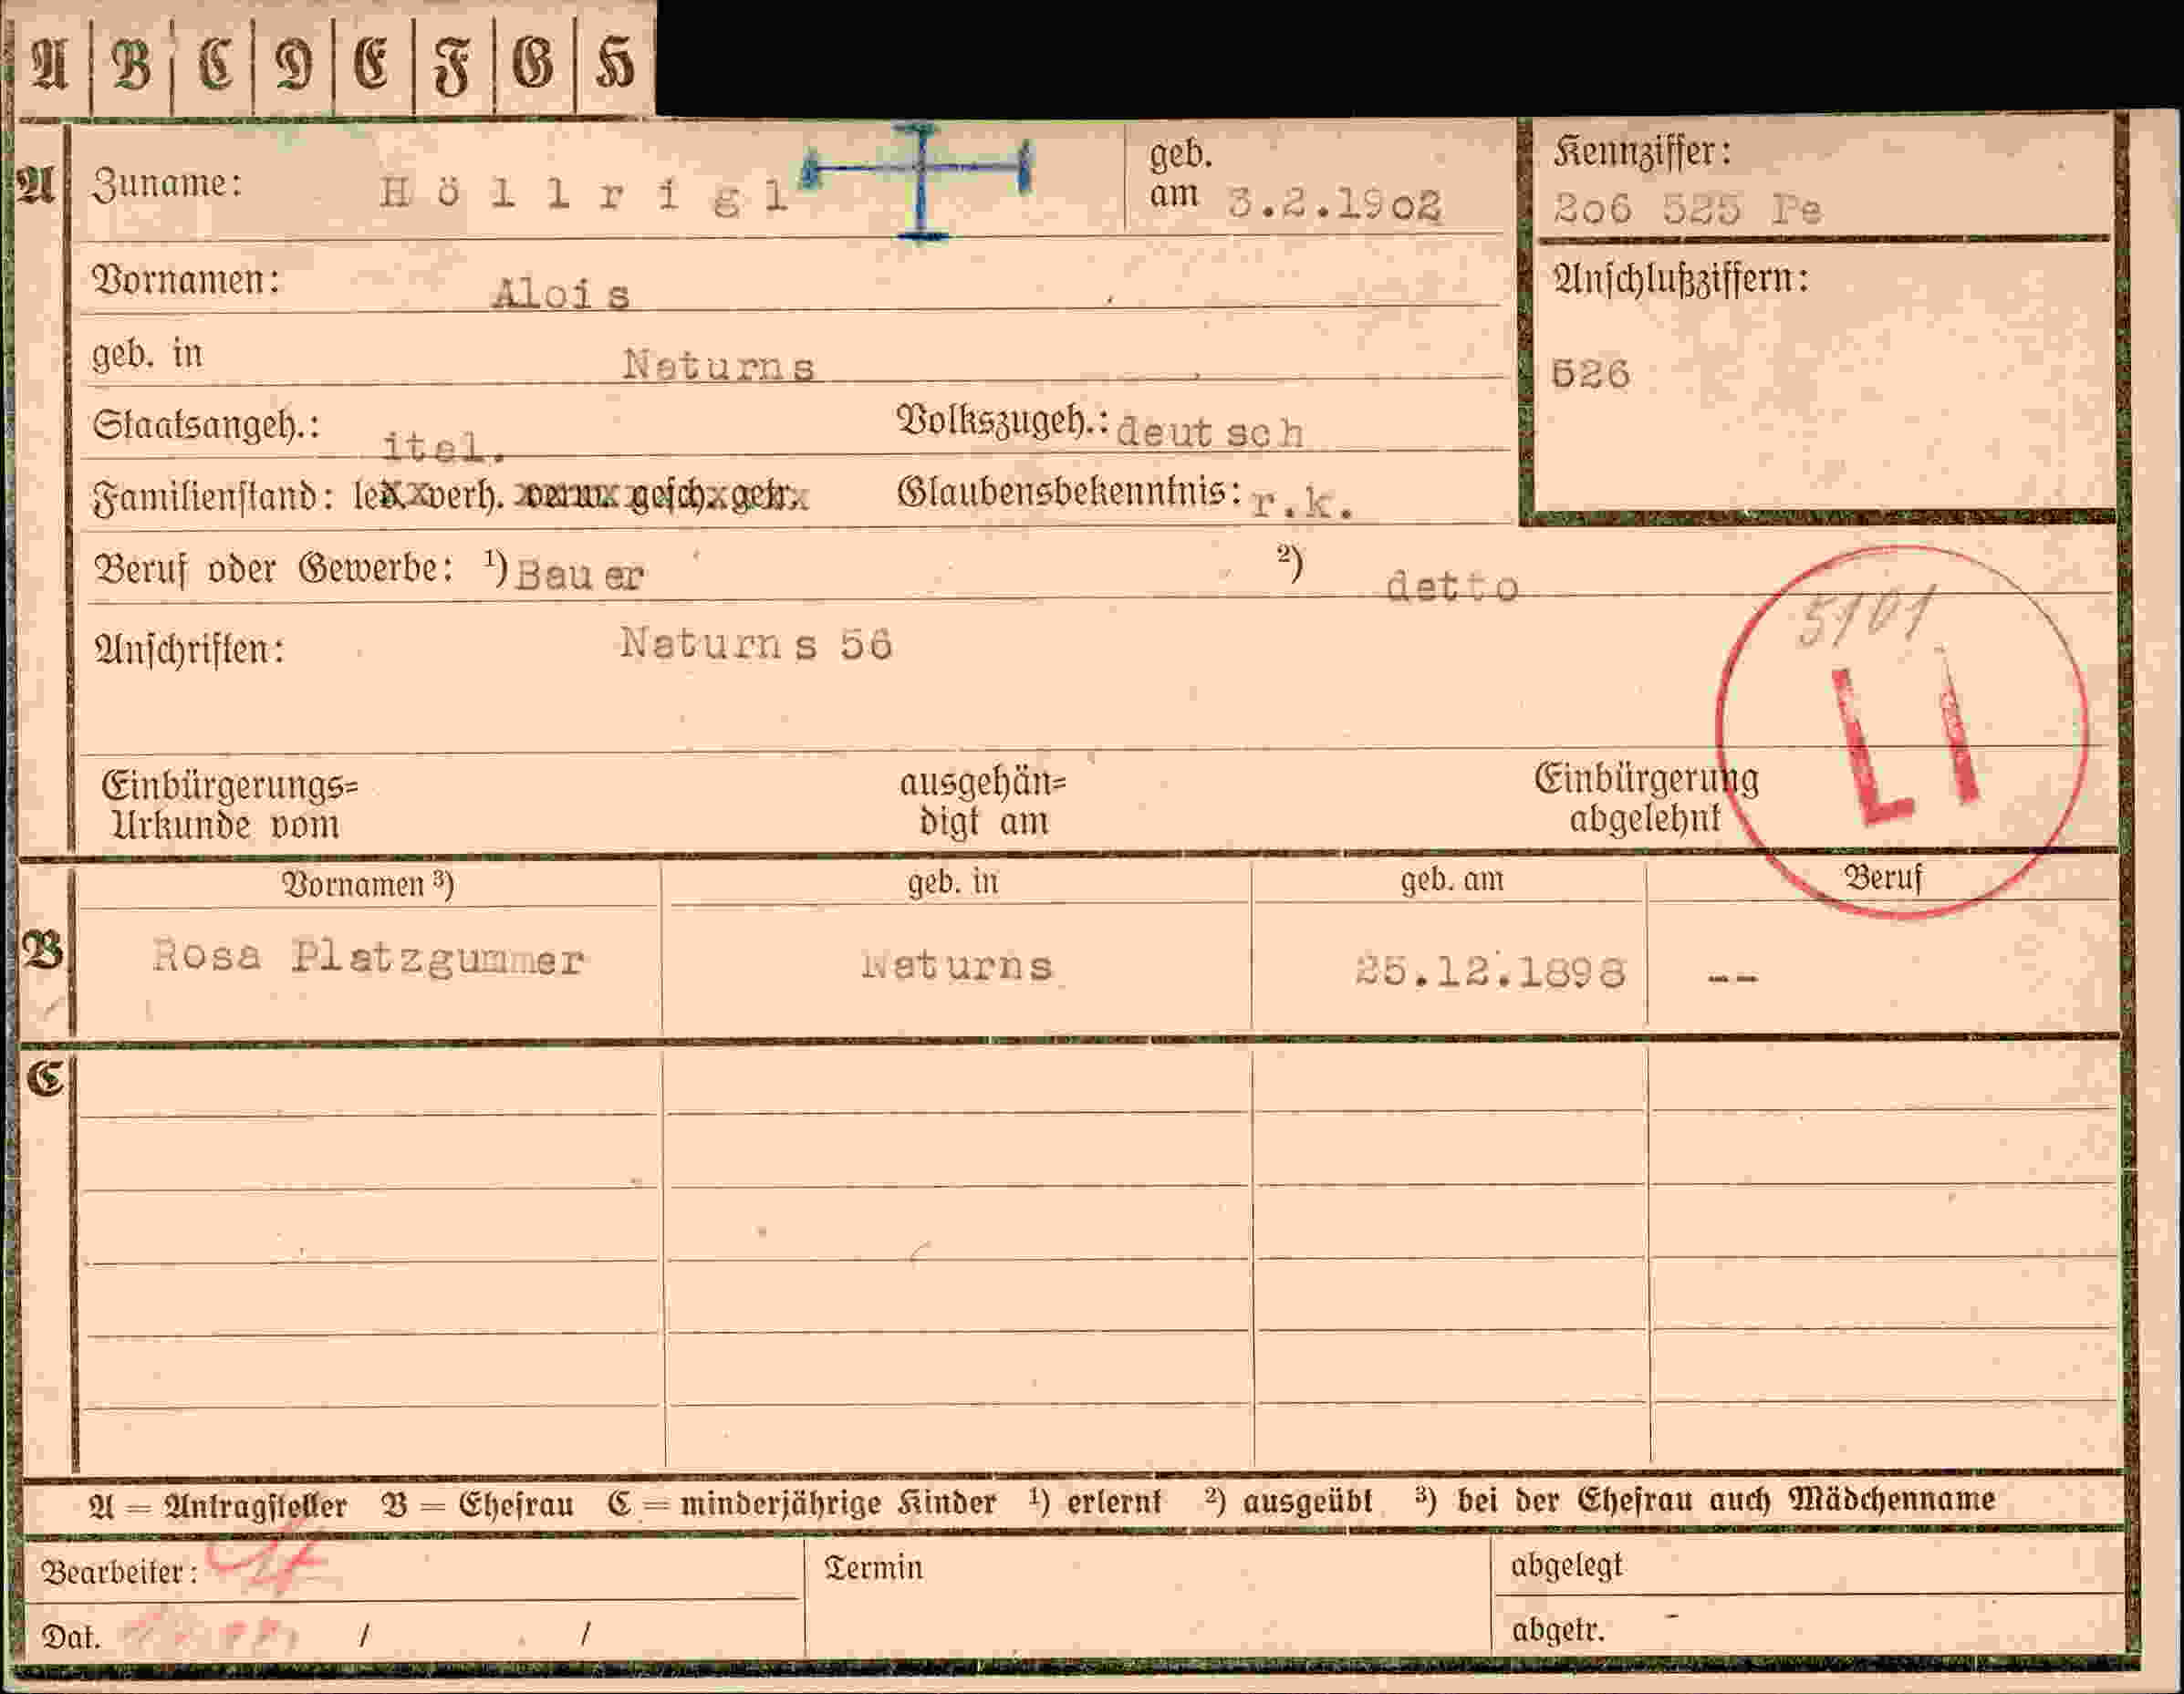 A B C D E F G H
A Zuname: Höllrigl geb. am 3.2.1902
Kennziffer:
206 525 Pe
Vornamen: Alois
Anschlußziffern:
geb. in Naturns
526
Staatsangeh.: ital. Volkszugeh.: deutsch
Familienstand: led. verh. verw. gesch. getr. Glaubensbekenntnis: r.k.
Beruf oder Gewerbe: 1) Bauer 2) detto
5101
Anschriften: Naturns 56
L I
Einbürgerungs=
Urkunde vom
ausgehän=
digt am
Einbürgerung
abgelehnt
Vornamen 3) geb. in geb. am Beruf
B Rosa Platzgummer Naturns 25.12.1898 --
C
A = Antragsteller B = Ehefrau C = minderjährige Kinder 1) erlernt 2) ausgeübt 3) bei der Ehefrau auch Mädchenname
Bearbeiter: Termin abgelegt
Dat. / / abgetr. -